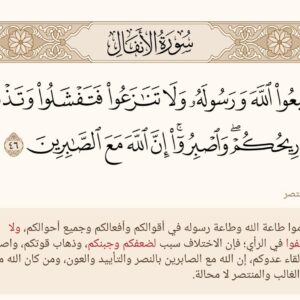 سُورَةُ الأَنفَالِ
يعُوا۟ ٱللَّهَ وَرَسُولَهُۥ وَلَا تَنَٰزَعُوا۟ فَتَفْشَلُوا۟ وَتَذْ
رِيحُكُمْ ۖ وَٱصْبِرُوٓا۟ ۚ إِنَّ ٱللَّهَ مَعَ ٱلصَّٰبِرِينَ ٤٦
ختصر
موا طاعة الله وطاعة رسوله في أقوالكم وأفعالكم وجميع أحوالكم، ولا
فوا في الرأي؛ فإن الاختلاف سبب لضعفكم وجبنكم، وذهاب قوتكم، واص
لقاء عدوكم، إن الله مع الصابرين بالنصر والتأييد والعون، ومن كان الله م
الغالب والمنتصر لا محالة.